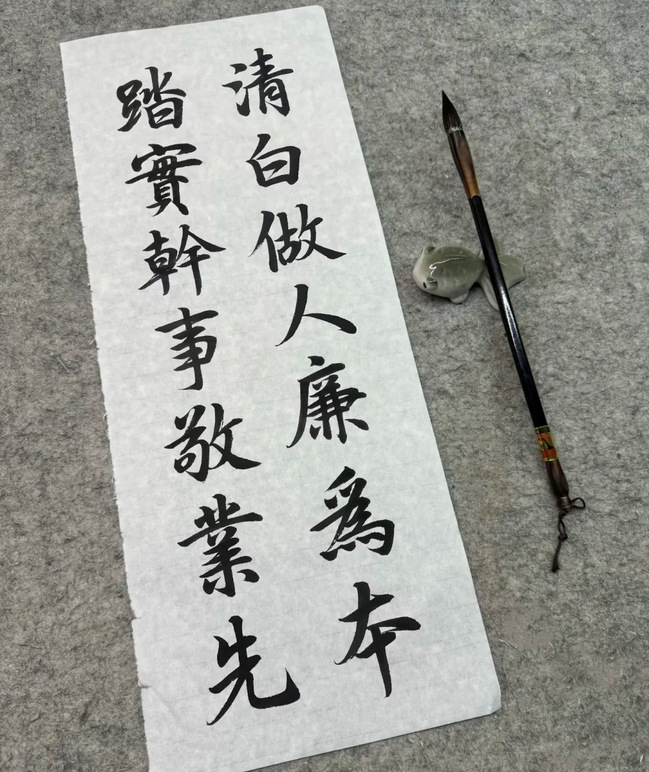 清白做人廉為本
踏實幹事敬業先